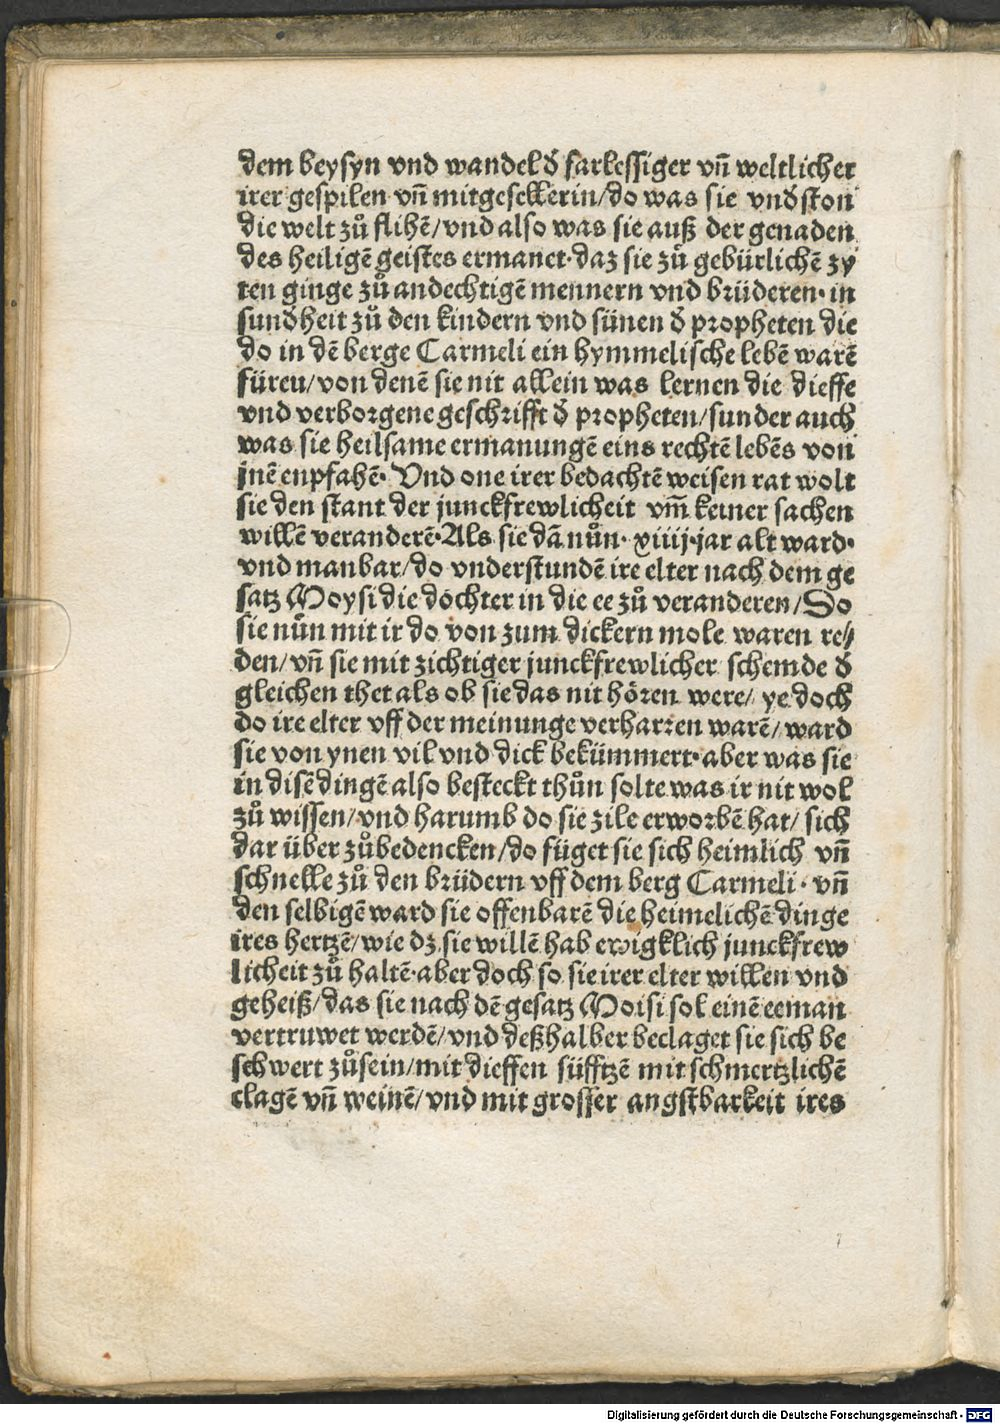 dem beysyn vnd wandel d̕ farlessiger vn̄ weltlicher
irer gespilen vn̄ mitgesellerin/do was sie vnd̕ston
die welt zů flihē/vnd also was sie auß der genaden
des heiligē geistes ermanet·daz sie zů gebürlichē zy
ten ginge zů andechtigē mennern vnd brüderen· in
sund̕heit zů den kindern vnd sünen d̕ propheten die
do in dē berge Carmeli ein hymmelische lebē warē
füren/von denē sie nit allein was lernen die dieffe
vnd verborgene geschrifft d̕ propheten/sunder auch
was sie heilsame ermanungē eins rechtē lebēs von
jnē enpfahē· Vnd one irer bedachtē weisen rat wolt
sie den stant der junckfrewlicheit vm̄ keiner sachen
willē veranderē·Als sie dā nůn· xiiij·jar alt ward·
vnd manbar/do vnderstundē ire elter nach dem ge
satz Moysi die dochter in die ee zů veranderen/So
sie nůn mit ir do von zum dickern mole waren re⸗
den/vn̄ sie mit zichtiger junckfrewlicher schemde d̕
gleichen thet als ob sie das nit hören were/ ye doch
do ire elter vff der meinunge verharren warē/ward
sie von ynen vil vnd dick bekümmert·aber was sie
in disē dingē also besteckt thůn solte was ir nit wol
zů wissen/vnd harumb do sie zile erworbē hat/ sich
dar über zůbedencken/do füget sie sich heimlich vn̄
schnelle zů den brüdern vff dem berg Carmeli· vn̄
den selbigē ward sie offenbarē die heimelichē dinge
ires hertzē/wie dz sie willē hab ewigklich junckfrew
licheit zů haltē·aber doch so sie irer elter willen vnd
geheiß/das sie nach dē gesatz Moisi sol einē eeman
vertruwet werdē/vnd deßhalber beclaget sie sich be
schwert zůsein/mit dieffen süfftzē mit schmertzlichē
clagē vn̄ weinē/vnd mit grosser angstbarkeit ires
Digitalisierung gefördert durch die Deutsche Forschungsgemeinschaft - DFG